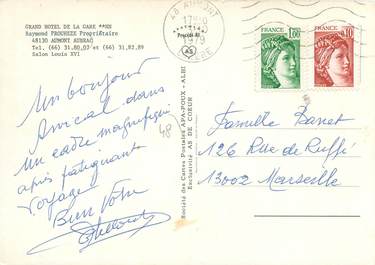 GRAND HOTEL DE LA GARE **NN
Raymond PROUHEZE Propriétaire
48130 AUMONT AUBRAC
Tel. (66) 31.80.07 et (66) 31.82.89
Salon Louis XVI
48 AUMONT
1979
LOZERE
1,00
0,10
Un bonjour
Amical dans
un cadre magnifique
après fatiguant
voyage
Bien Votre
48
Société des Cartes Postales APA-POUX - ALBI
Exclusivité AS DE COEUR
Procédé
AS
Famille Panet
126 Rue de Ruffi
13002 Marseille